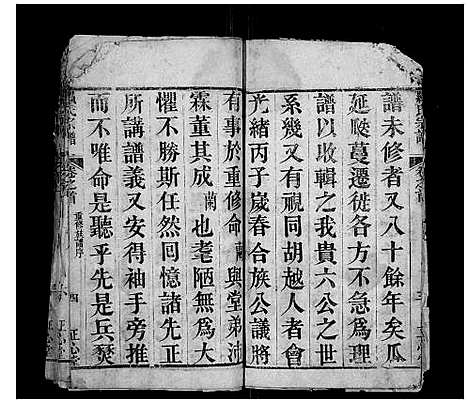 譜未修者又八十餘年矣瓜
延瞹蔓遷徙各方不急為理
譜以收輯之我貴六公之世
系幾又有視同胡越人者會
光緒丙子嵗春合族公議將
有事於重修命蘭與堂弟沛
霖董其成蘭也耄陋無為大
懼不勝斯任然回憶諸先正
所講譜義又安得袖手旁推
而不唯命是聽乎先是兵燹
氏宗譜
卷之首
重修族譜序
四
正心堂